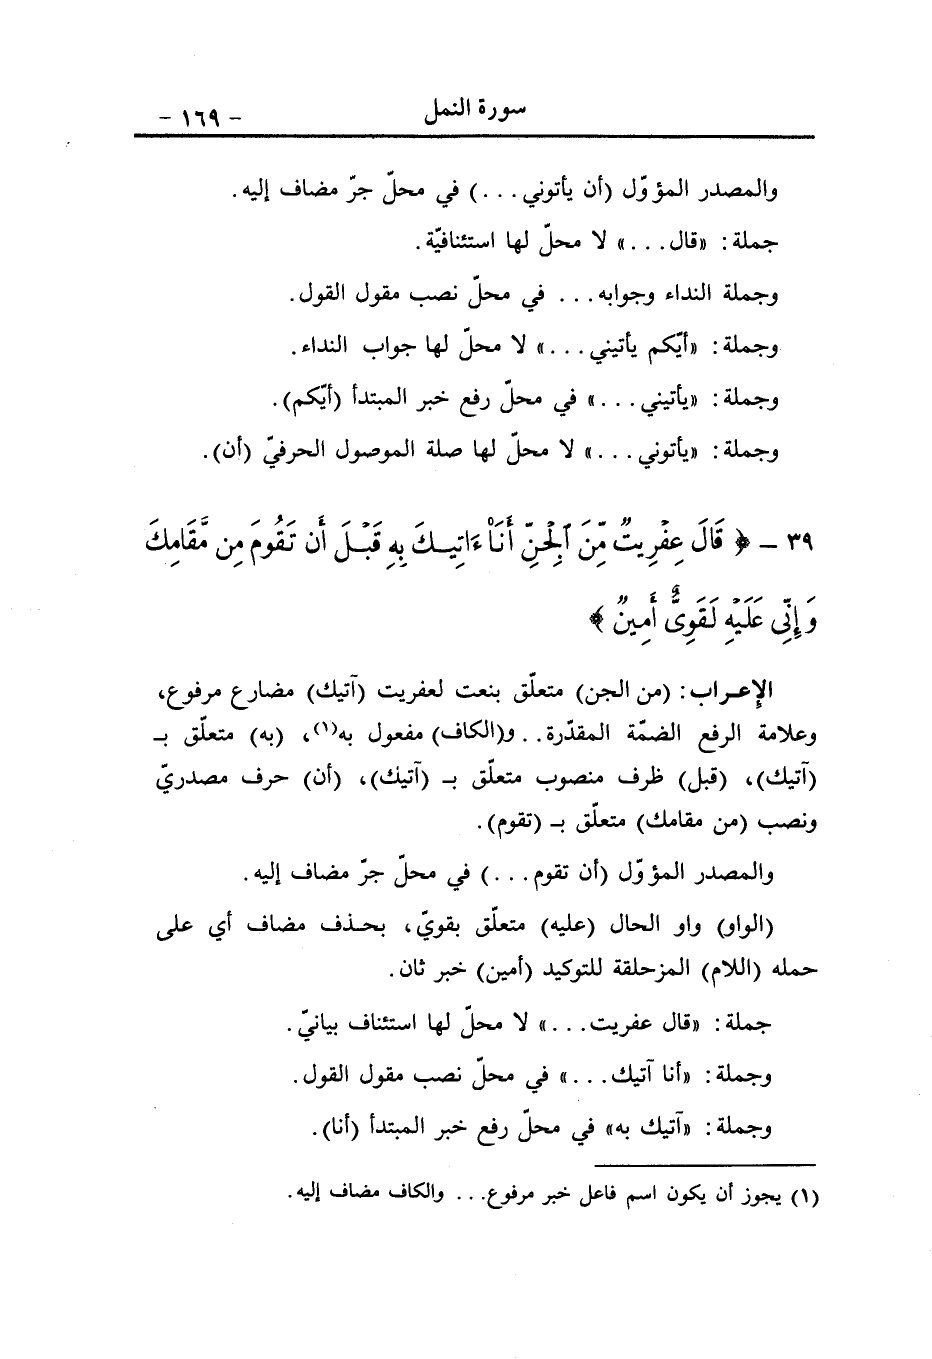 سورة النمل
- ١٦٩ -
والمصدر المؤوّل (أن يأتوني...) في محلّ جرّ مضاف إليه.
جملة: «قال...» لا محلّ لها استئنافيّة.
وجملة النداء وجوابه... في محلّ نصب مقول القول.
وجملة: «أيّكم يأتيني...» لا محلّ لها جواب النداء.
وجملة: «يأتيني...» في محلّ رفع خبر المبتدأ (أيّكم).
وجملة: «يأتوني...» لا محلّ لها صلة الموصول الحرفيّ (أن).
٣٩ - ﴿ قَالَ عِفْرِيتٌ مِّنَ ٱلْجِنِّ أَنَا۠ ءَاتِيكَ بِهِۦ قَبْلَ أَن تَقُومَ مِن مَّقَامِكَ
وَإِنِّي عَلَيْهِ لَقَوِيٌّ أَمِينٌ ﴾
الإعراب: (من الجن) متعلّق بنعت لعفريت (آتيك) مضارع مرفوع،
وعلامة الرفع الضمّة المقدّرة.. و(الكاف) مفعول به(١)، (به) متعلّق بـ
(آتيك)، (قبل) ظرف منصوب متعلّق بـ (آتيك)، (أن) حرف مصدريّ
ونصب (من مقامك) متعلّق بـ (تقوم).
والمصدر المؤوّل (أن تقوم...) في محلّ جرّ مضاف إليه.
(الواو) واو الحال (عليه) متعلّق بقويّ، بحذف مضاف أي على
حمله (اللام) المزحلقة للتوكيد (أمين) خبر ثان.
جملة: «قال عفريت...» لا محلّ لها استئناف بيانيّ.
وجملة: «أنا آتيك...» في محلّ نصب مقول القول.
وجملة: «آتيك به» في محلّ رفع خبر المبتدأ (أنا).
(١) يجوز أن يكون اسم فاعل خبر مرفوع... والكاف مضاف إليه.